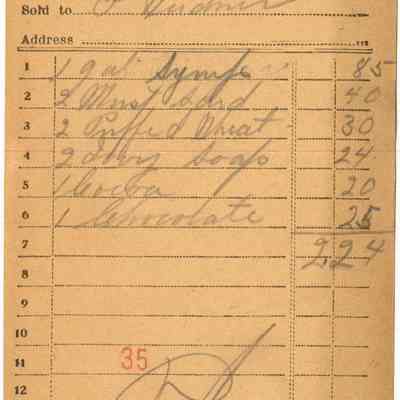 Sold to
Address
1 1 gal Symp 85
2 2 Must Sard 40
3 2 Puffed Wheat 30
4 2 Ivory Soap 24
5 1 Cocoa 20
6 1 Chocolate 25
7 2,24
8
9
10
11 35
12